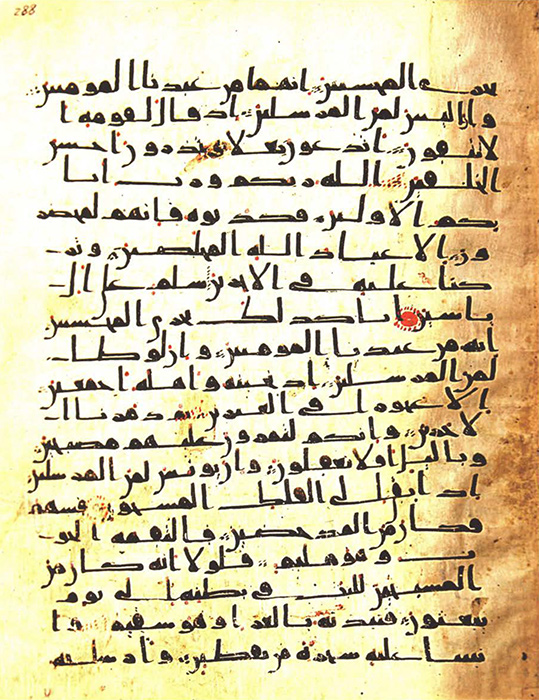 288
نجزى المحسنين انهما من عبدنا المومنين
وان الياس لمن المرسلين اذ قال لقومه ا
لا تتقون اتدعون بعلا وتذرون احسن
الخلقين الله ربكم ورب ابا
يكم الاولين فكذبوه فانهم لمحضر
ون الا عباد الله المخلصين وتر
كنا عليه فى الاخرين سلم على ال
ياسين انا كذلك نجزى المحسنين
انه من عبدنا المومنين وان لوطا
لمن المرسلين اذ نجينه واهله اجمعين
الا عجوزا فى الغبرين ثم دمرنا ا
لاخرين وانكم لتمرون عليهم مصبحين
وباليل افلا تعقلون وان يونس لمن المرسلين
اذ ابق الى الفلك المشحون فسهم
فكان من المدحضين فالتقمه الحو
ت وهو مليم فلولا انه كان من
المسبحين للبث فى بطنه الى يوم
يبعثون فنبذنه بالعرا وهو سقيم وا
نبتنا عليه شجرة من يقطين وارسلنه